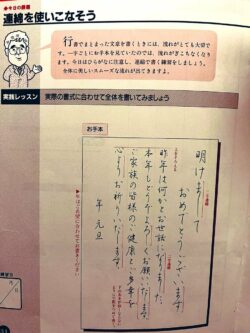 今日の課題
連綿を使いこなそう
行書でまとまった文章を書くときには、流れがとても大切で
す。一字ごとにお手本を見ていたのでは、流れがぎこちなくなり
ます。今日はひらがなに注意し、連綿で書く練習をしましょう。
全体に美しいスムーズな流れが出てきますよ。
実践レッスン
実際の書式に合わせて全体を書いてみましょう
お手本
明けまして
おめでとうございます
昨年は何かとお世話になりました
本年もどうぞよろしくお願いいたします
ご家族の皆様のご健康とご多幸を
心よりお祈りいたします
年 元旦